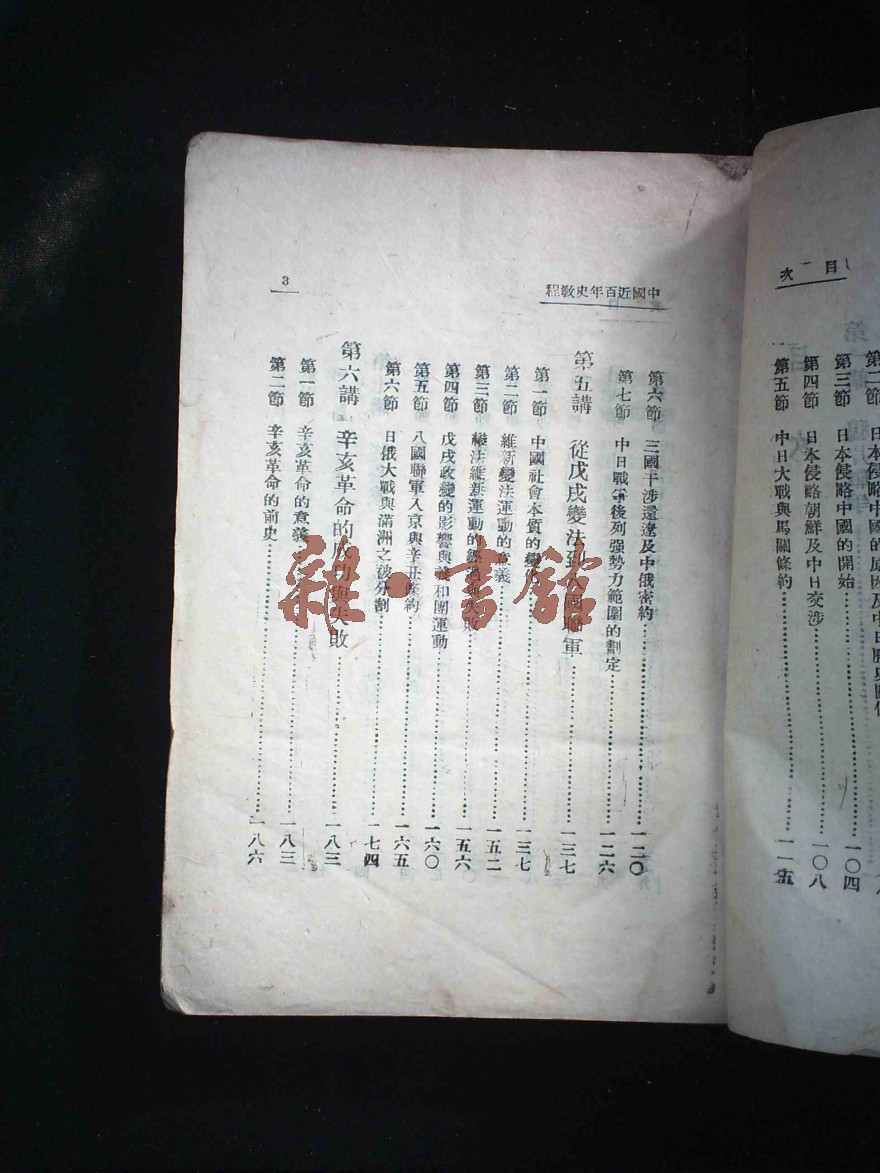 目次
第三節 日本侵略中國的開始……一〇四
第四節 日本侵略朝鮮及中日交涉……一〇八
第五節 中日大戰與馬關條約……一一五
中國近百年史教程
3
第六節 三國干涉還遼及中俄密約……一二〇
第七節 中日戰爭後列强勢力範圍的劃定……一二六
第五講 從戊戌變法到八國聯軍……一三七
第一節 中國社會本質的變……一三七
第二節 維新變法運動的意義……一五二
第三節 變法維新運動的經過與失敗……一五六
第四節 戊戌政變的影響與義和團運動……一六〇
第五節 八國聯軍入京與辛丑條約……一六五
第六節 日俄大戰與滿洲之被分割……一七四
第六講 辛亥革命的成功與失敗……一八三
第一節 辛亥革命的意義……一八三
第二節 辛亥革命的前史……一八六
雜·書館